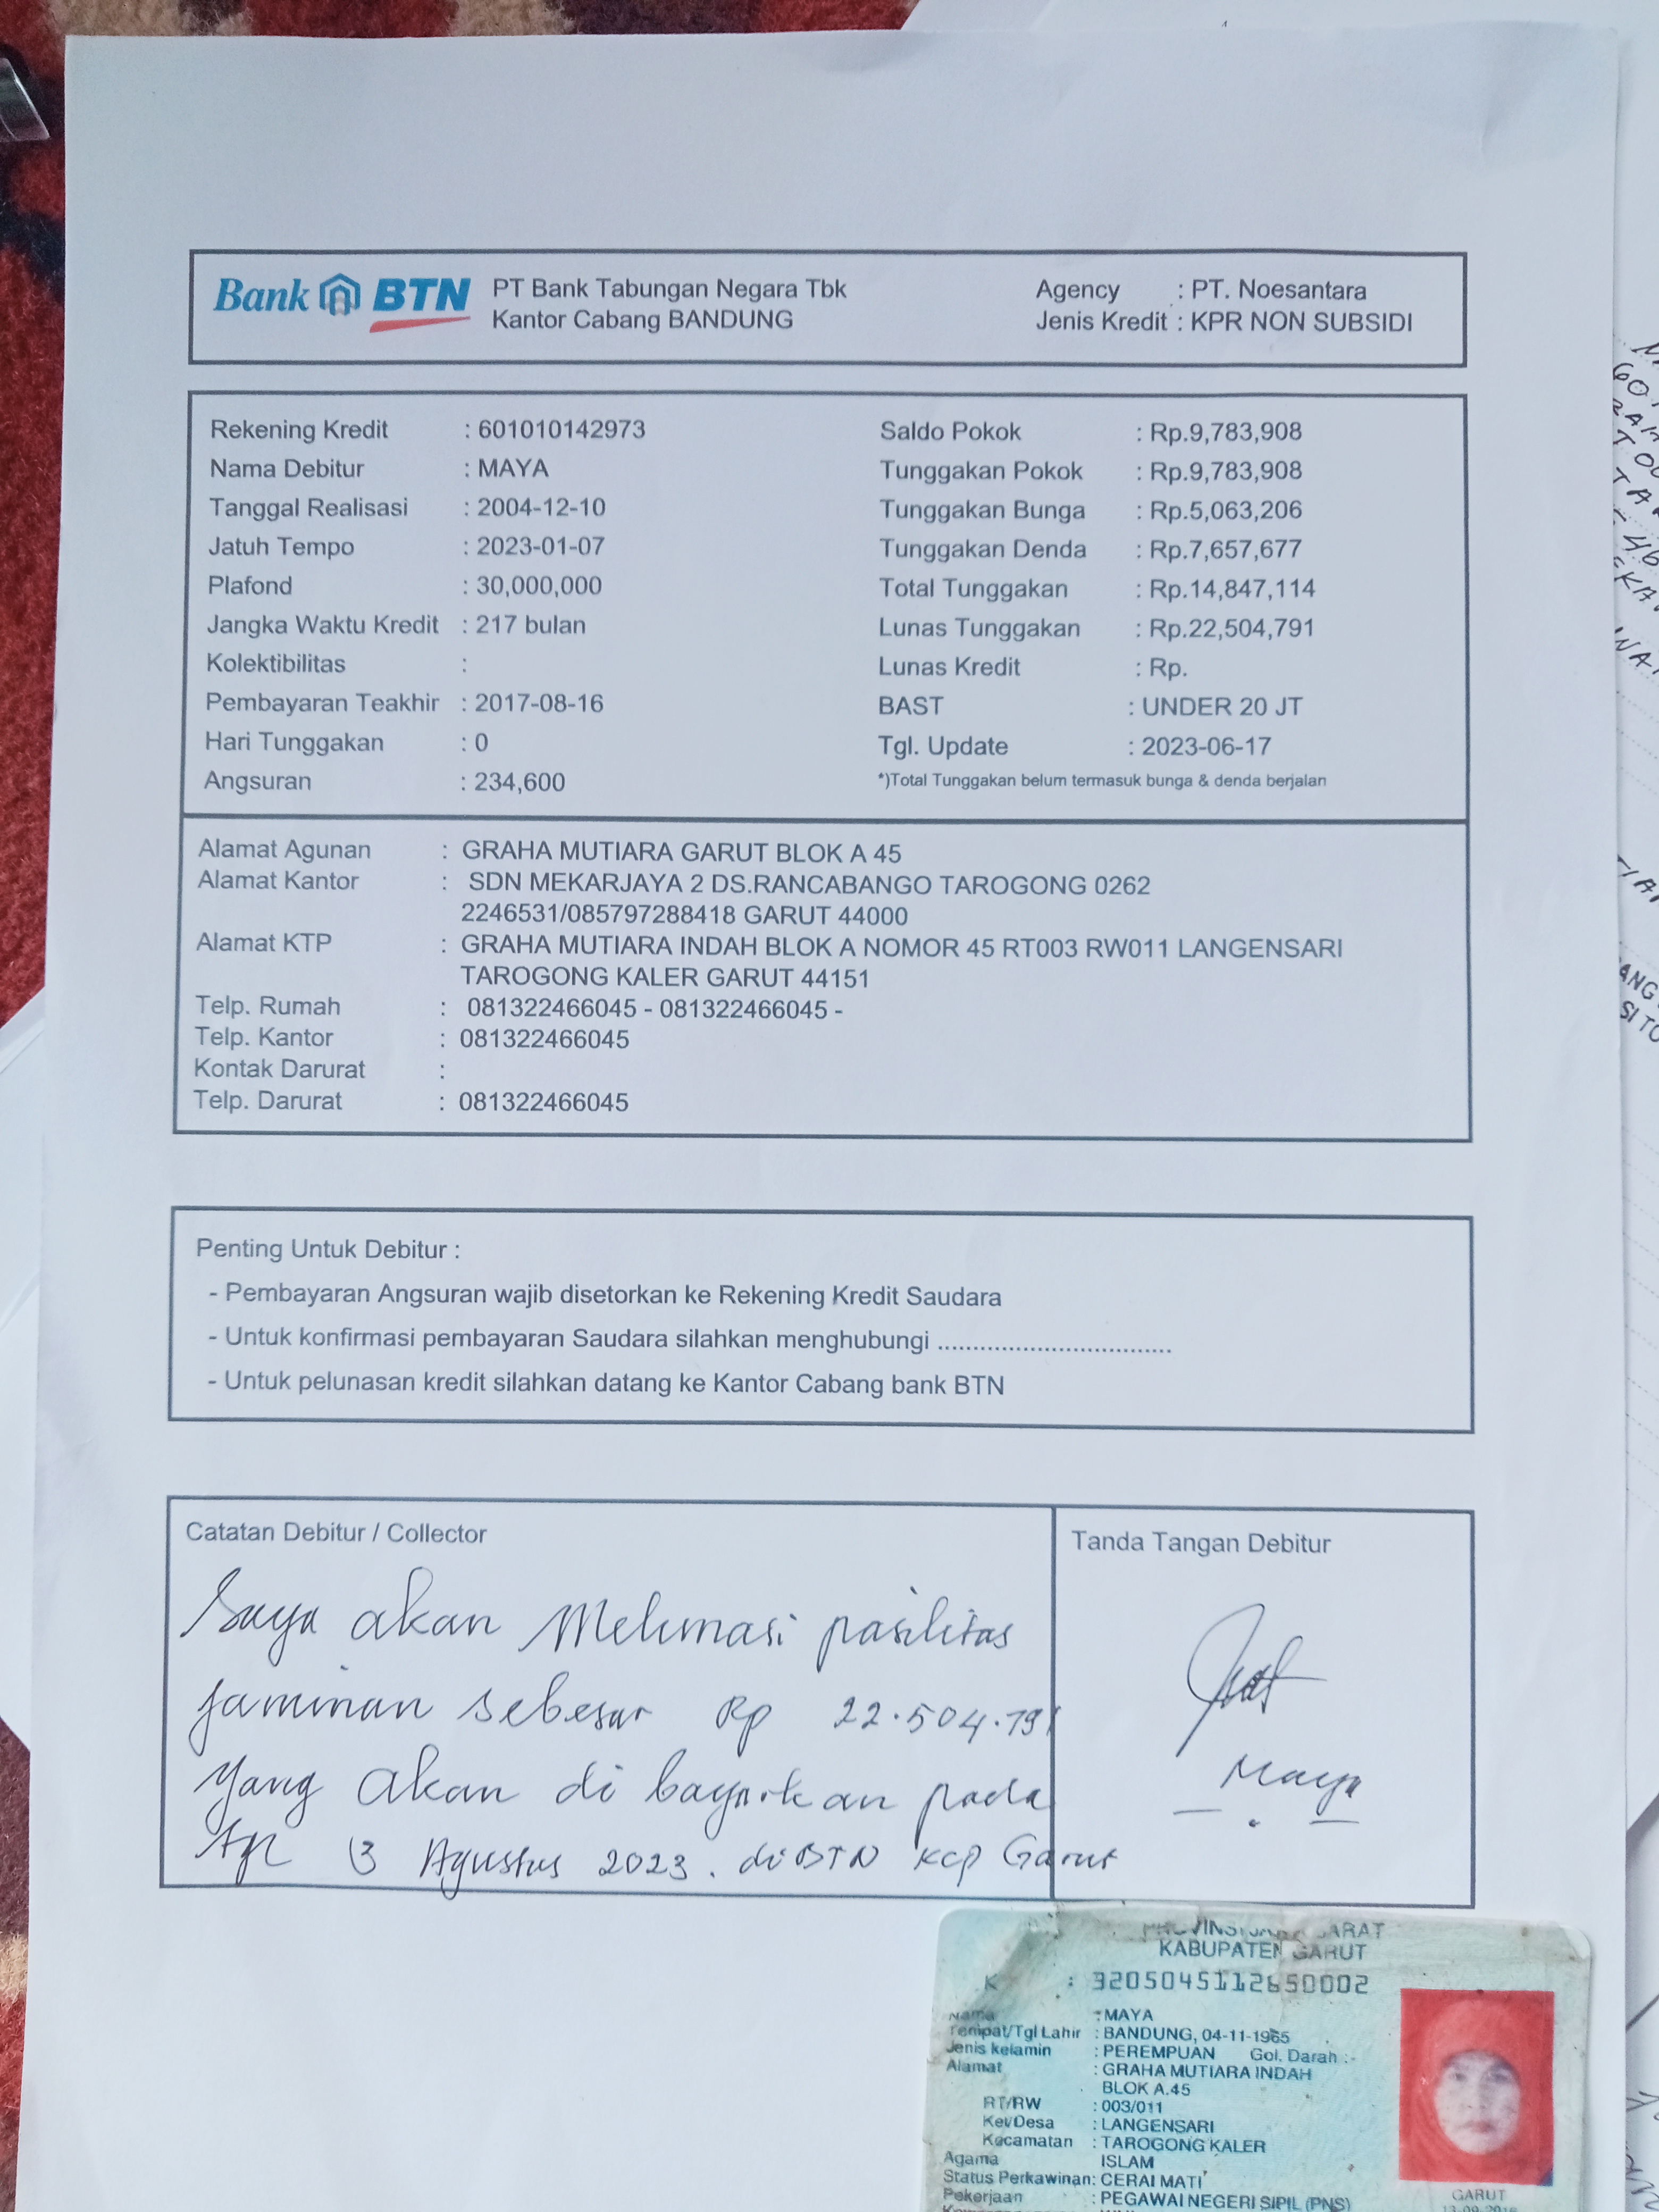 Bank BTN PT Bank Tabungan Negara Tbk
Kantor Cabang BANDUNG
Agency : PT. Noesantara
Jenis Kredit : KPR NON SUBSIDI
Rekening Kredit : 601010142973
Nama Debitur : MAYA
Tanggal Realisasi : 2004-12-10
Jatuh Tempo : 2023-01-07
Plafond : 30,000,000
Jangka Waktu Kredit : 217 bulan
Kolektibilitas :
Pembayaran Teakhir : 2017-08-16
Hari Tunggakan : 0
Angsuran : 234,600
Saldo Pokok : Rp.9,783,908
Tunggakan Pokok : Rp.9,783,908
Tunggakan Bunga : Rp.5,063,206
Tunggakan Denda : Rp.7,657,677
Total Tunggakan : Rp.14,847,114
Lunas Tunggakan : Rp.22,504,791
Lunas Kredit : Rp.
BAST : UNDER 20 JT
Tgl. Update : 2023-06-17
*)Total Tunggakan belum termasuk bunga & denda berjalan
Alamat Agunan : GRAHA MUTIARA GARUT BLOK A 45
Alamat Kantor : SDN MEKARJAYA 2 DS.RANCABANGO TAROGONG 0262
2246531/085797288418 GARUT 44000
Alamat KTP : GRAHA MUTIARA INDAH BLOK A NOMOR 45 RT003 RW011 LANGENSARI
TAROGONG KALER GARUT 44151
Telp. Rumah : 081322466045 - 081322466045 -
Telp. Kantor : 081322466045
Kontak Darurat :
Telp. Darurat : 081322466045
Penting Untuk Debitur :
- Pembayaran Angsuran wajib disetorkan ke Rekening Kredit Saudara
- Untuk konfirmasi pembayaran Saudara silahkan menghubungi .................................
- Untuk pelunasan kredit silahkan datang ke Kantor Cabang bank BTN
Catatan Debitur / Collector
Saya akan Melunasi pasilitas
jaminan sebesar Rp 22.504.791
yang akan di bayarkan pada
tgl 3 Agustus 2023. di BTN KCP Garut
Tanda Tangan Debitur
Maya
PROVINSI JAWA BARAT
KABUPATEN GARUT
K : 3205045112650002
Nama : MAYA
Tempat/Tgl Lahir : BANDUNG, 04-11-1965
Jenis kelamin : PEREMPUAN Gol. Darah :-
Alamat : GRAHA MUTIARA INDAH
BLOK A.45
RT/RW : 003/011
Kel/Desa : LANGENSARI
Kecamatan : TAROGONG KALER
Agama ISLAM
Status Perkawinan: CERAI MATI
Pekerjaan : PEGAWAI NEGERI SIPIL (PNS)
GARUT